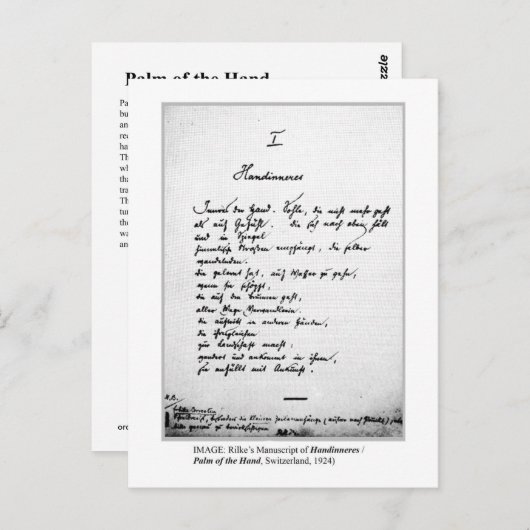 Palm of the Hand
Pa
bu
an
rec
ha
Th
wh
tha
tra
Th
tur
the
wa
an
zzle
I
Handinneres
Innres der Hand. Sohle, die nicht mehr geht
als auf Gefühl. die sich nach oben hält
und im Spiegel
himmlische Straßen empfängt, die selber
wandelnden.
die gelernt hat, auf Wasser zu gehn,
wenn sie schöpft,
die auf den Brunnen geht,
aller Wege Verwandlerin.
die auftritt in anderen Händen,
die ihresgleichen
zur Landschaft macht:
wandert und ankommt in ihnen,
sie anfüllt mit Ankunft.
N.B.
IMAGE: Rilke's Manuscript of Handinneres /
Palm of the Hand, Switzerland, 1924)